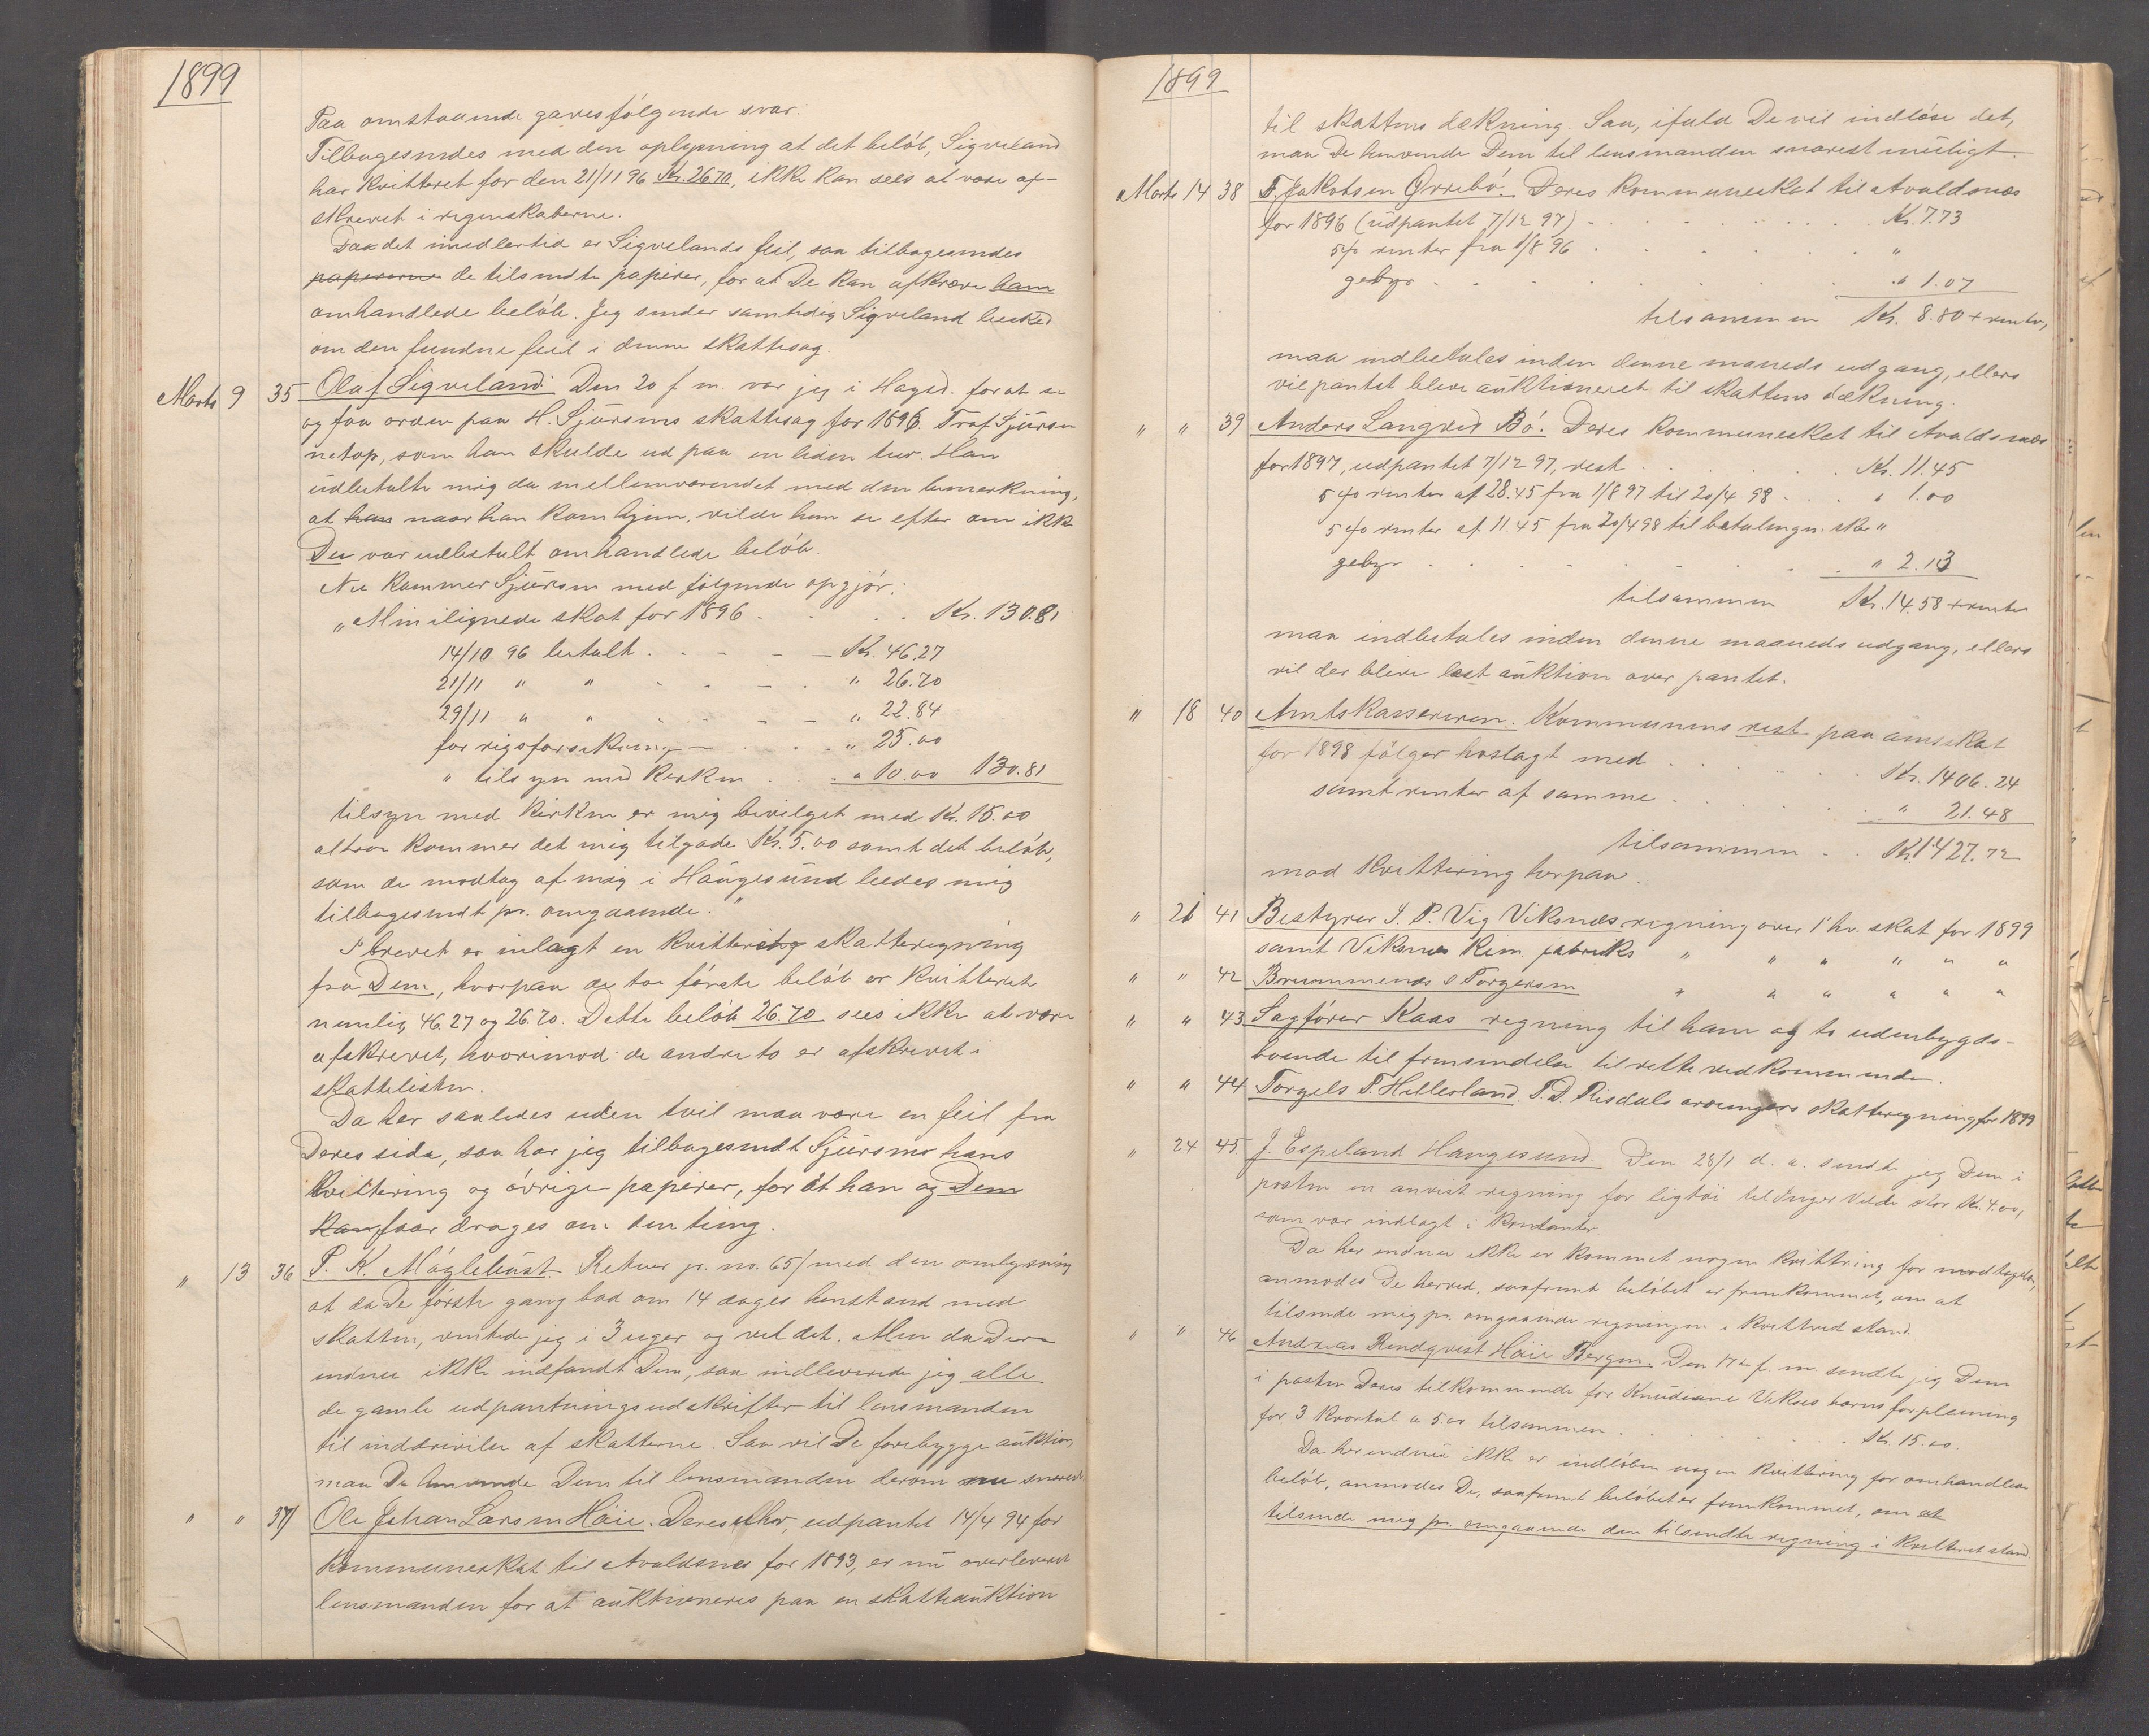 1899
Paa omstaaende gaves følgende svar:
Tilbagesendes med den oplysning at det beløb, Sigveland
har kvitteret for den 21/11 96 Kr. 26.70, ikke kan sees at være af-
skrevet i regnskaberne.
Da det imedlertid er Sigvelands feil, saa tilbagesendes
papirerne de tilsendte papirer, for at De kan afkræve ham
omhandlede beløb. Jeg sender samtidig Sigveland besked
om den fundne feil i denne skattesag.
Marts 9 35 Olaf Sigveland. Den 20 f m. var jeg i Hagsd. for at se
og faa orden paa H. Sjursens skattesag for 1896. Traf Sjursen
netop, som han skulde ud paa en liden tur. Han
udbetalte mig da mellemværendet med den bemærkning,
at han naar han kom hjem, vilde han se efter om ikke
Du var udbetalt omhandlede beløb.
Nu kommer Sjursen med følgende opgjør:
„Min ilignede skat for 1896 . . . . Kr. 130.81
14/10 96 betalt . - - - - Kr. 46.27
21/11 " " . . - . " 26.70
29/11 " " . . - - " 22.84
for rigsforsikring - . . . " 25.00
" tilsyn med kirken . . . " 10.00 130.81
tilsyn med kirken er mig bevilget med Kr. 15.00
altsaa kommer det mig tilgode Kr. 5.00 samt det beløb,
som de modtog af mig i Haugesund bedes mig
tilbagesendt pr. omgaaende."
I brevet er inlagt en kvittering skatteregning
fra Dem, hvorpaa de to første beløb er kvitteret
nemlig 46.27 og 26.70. Dette beløb 26.70 sees ikke at være
afskrevet, hvorimod de andre to er afskrevet i
skattelisten.
Da her saaledes uden tvil maa være en feil fra
Deres side, saa har jeg tilbagesendt Sjursens hans
kvittering og øvrige papirer, for at han og Dem
kan faar drages om den ting.
" 13 36 P. K. Møglebust. Retur jr. no. 65/ med den omlysning
at da De første gang bad om 14 dages henstand med
skatten, ventede jeg i 3 uger og vel det. Men da De
endnu ikke indfandt Dem, saa indleverede jeg alle
de gamle udpantningsudskrifter til lensmanden
til inddrivelse af skatterne. Saa vil De forebygge auktion,
maa De henvende Dem til lensmanden derom nu snarest
" " 37 Ole Johan Larsen Høie. Deres uhr, udpantet 14/4 94 for
kommuneskat til Avaldsnes for 1893, er nu overleveret
lensmanden for at auktioneres paa en skatteauktion
1899
til skattens dækning. Saa, ifald De vil indløse det,
maa De henvende Dem til lensmanden snarest muligt.
Marts 14 38 F. Jakobsen Ørrebø. Deres kommuneskat til Avaldsnes
for 1896 (udpantet 7/12 97) - . . . . . . Kr. 7.73
5% renter fra 1/8 96 . . . . . "
gebyr . . . . . . " 1.07
tilsammen Kr. 8.80 + renter,
maa indbetales inden denne maaneds udgang, ellers
vil pantet blive auktioneret til skattens dækning.
" " 39 Anders Langved Bø. Deres kommuneskat til Avaldsnes
for 1897, udpantet 7/12 97, rest . . . . . Kr. 11.45
5% renter af 28.45 fra 1/8 97 til 20/4 98 . . . " 1.00
5% renter af 11.45 fra 20/4 98 til betalingen sker "
gebyr . . . . . . " 2.13
tilsammen Kr. 14.58 + renter
maa indbetales inden denne maaneds udgang, ellers
vil der blive læst auktion over pantet.
" 18 40 Amtskassereren. Kommunens rest paa amtskat
for 1898 følger hoslagt med . . . . . Kr. 1406.24
samt renter af samme . . . . . " 21.48
tilsammen . . Kr. 1427.72
mod kvittering herpaa.
" 21 41 Bestyrer S. P. Vig Viksnæs regning over 1 hv. skat for 1899
samt Viksnes Kem. fabriks " " " " " "
" " 42 Brummenæs & Torgersen " " " " " "
" " 43 Sagfører Kaas regning til ham og to udenbygds-
boende til fremsendelse til rette vedkommende.
" " 44 Torgels T. Hellesland. T. D. Risdals arvingers skatteregning for 1899
" 24 45 J. Espeland Haugesund. Den 28/1 d. a. sendte jeg Dem i
posten en anvist regning for ligtøi til Inger Velde stor Kr. 4.00,
som var indlagt i kontanter
Da her endnu ikke er kommet nogen kvittring for modtagelsen,
anmodes De herved, saafremt beløbet er fremkommet, om at
tilsende mig pr. omgaaende regningen i kvittred stand.
" " 46 Andreas Rindqvist Høie Bergen. Den 17de f. m. sendte jeg Dem
i posten Deres tilkommende for Knudiane Vikses barns forpleining
for 3 kvartal a 5.00 tilsammen . . . . . . Kr. 15.00.
Da her endnu ikke er indløben nogen kvittering for omhandlede
beløb, anmodes De, saafremt beløbet er fremkommet, om at
tilsende mig pr. omgaaende den tilsendte regning i kvitteret stand